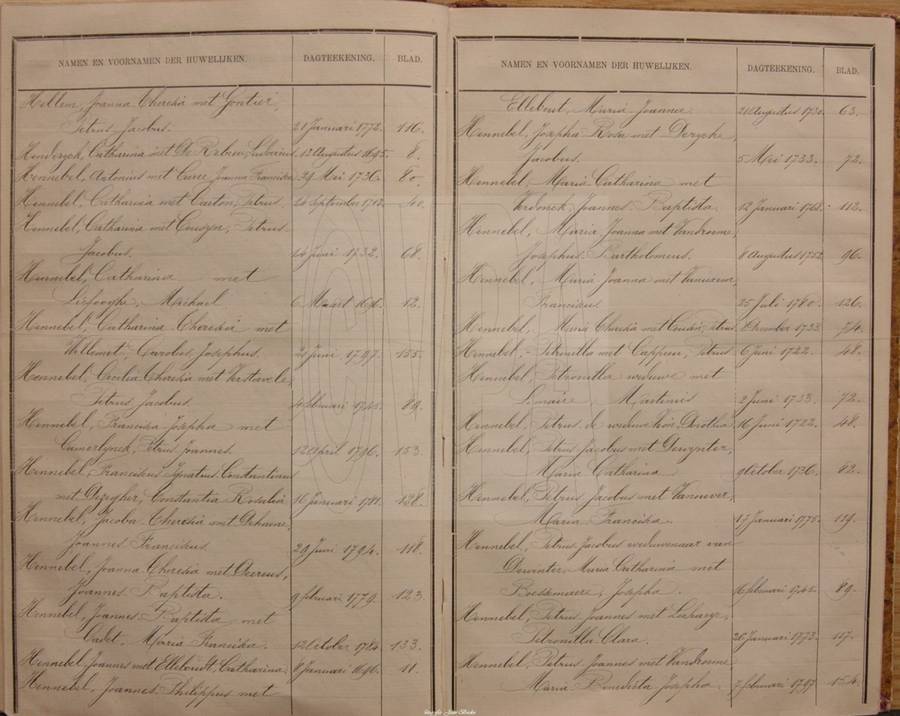 NAMEN EN VOORNAMEN DER HUWELIJKEN. DAGTEEKENING. BLAD.
Hellem, Joanna Theresia met Gontier,
Petrus Jacobus. 21 Januari 1772. 116.
Catharina met De 13 Augustus 1695. 8.
Hennebel, Antonius met Joanna Francisca 29 Mei 1736. 80.
Hennebel, Catharina met Carton, Petrus. 20 September 40.
Hennebel, Catharina met Petrus
Jacobus. 24 Juni 1732. 68.
Hennebel, Catharina met
Michael 6 Maart 1696. 12.
Hennebel, Catharina Theresia met
Willemet, Carolus, Josephus. Juni 1797. 155.
Hennebel, Cecilia Theresia met Verstavele,
Petrus Jacobus. 4 februari 89.
Hennebel, Francisca Josepha met
Camerlynck, Petrus Joannes. 12 April 1796. 153.
Hennebel, Franciskus Ignatius Constantinus
met Constantia Rosalia 16 Januari 1781. 128.
Hennebel, Jacoba Theresia met Dehaene,
Joannes Franciskus 29 Juni 118.
Hennebel, Joanna Theresia met
Joannes Baptista. 9 februari 1779. 123.
Hennebel, Joannes Baptista met
Cadet, Maria Francisca. 12 October 1784. 133.
Hennebel, Joannes met Catharina, 8 Januari 1696. 11.
Hennebel, Joannes Philippus met
NAMEN EN VOORNAMEN DER HUWELIJKEN. DAGTEEKENING. BLAD.
Ellebout, Maria Joanna 21 Augustus 1730. 63.
Hennebel, Josepha Rosa met Deryck,
Jacobus. 5 Mei 1733. 72.
Hennebel, Maria Catharina met
Joannes Baptista. 12 Januari 113.
Hennebel, Maria Joanna met Vandromme,
Josephus Bartholomeus. 8 Augustus 1752. 96.
Hennebel, Maria Joanna met
Franciscus 25 Juli 1780. 126.
Hennebel, Maria Theresia met Petrus December 1733. 74.
Hennebel, Petronilla met Petrus 6 Juni 1722. 48.
Hennebel, Petronilla weduwe met
Lemaire, Martinus 2 Juni 1733. 72.
Hennebel, Petrus de weduwe Dorothea 16 Juni 1722. 48.
Hennebel, Petrus Jacobus met Dewynter,
Maria Catharina 9 October 1736. 82.
Hennebel, Petrus Jacobus met
Maria Francisca. 17 Januari 1775. 119.
Hennebel, Petrus Jacobus weduwenaar van
Dewinter Maria Catharina met
Josepha. februari 89.
Hennebel, Petrus Joannes met
Petronilla Clara. 26 Januari 1773. 117.
Hennebel, Petrus Joannes met Vandromme,
Maria Benedicta Josepha. 7 februari 1797. 154.
Copyright